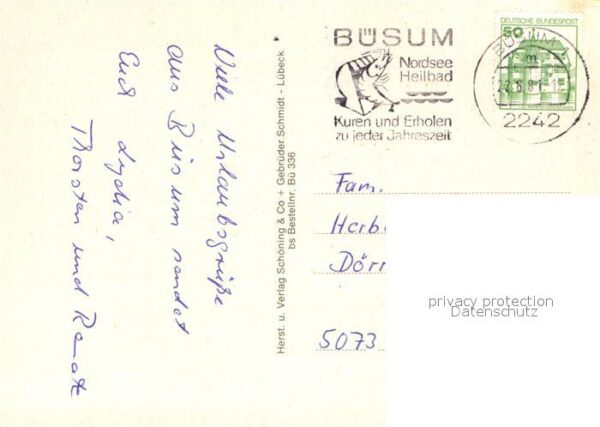 Viele Urlaubsgrüße
aus Büsum sendet
Euch Lydia,
Thorsten und Renate
Herst. u. Verlag Schöning & Co + Gebrüder Schmidt - Lübeck
bs Bestellnr. Bü 336
BÜSUM
Nordsee
Heilbad
Kuren und Erholen
zu jeder Jahreszeit
DEUTSCHE BUNDESPOST
50
BÜSUM
2242
Fam.
Herb
Dörr
5073
privacy protection
Datenschutz